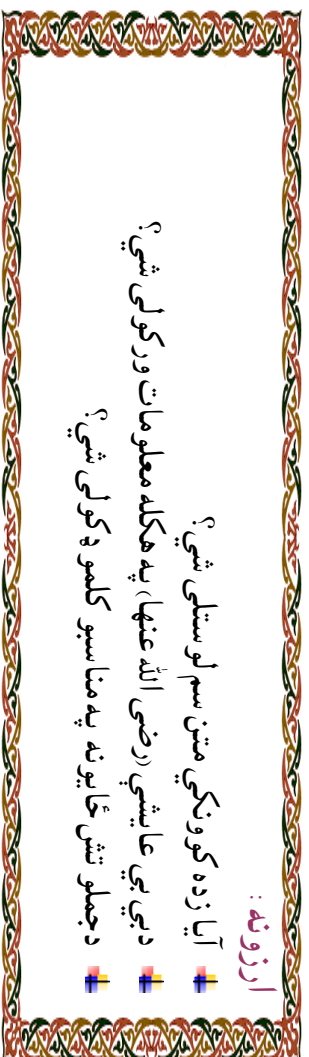 ارزونه :
آیا زده کوونکي متن سم لوستلی شي؟
دبي بي عایشې (رضی الله عنها) په هکله معلومات ورکولی شي؟
دجملو تش ځایونه په مناسبو کلمو ډکولی شي؟